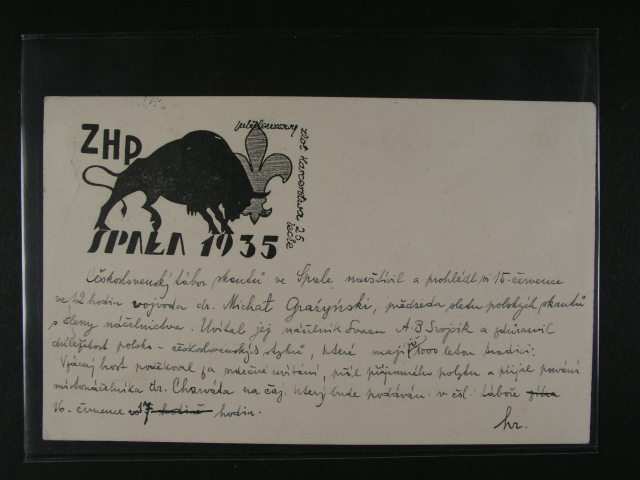 ZHP
jubileuszowy
zlot Harcerstwa 25 lecie
SPAŁA 1935
Československý tábor skautů ve Spale navštívil a prohlédl si 15. července
ve 12 hodin vojvoda dr. Michał Grażyński, předseda sletu polských skautů
s členy náčelnictva. Uvítal jej náčelník Svazu A.B. Svojsík a zdůraznil
důležitost polsko - československých styků, které mají již 1000 letou tradici.
Vzácný host poděkoval za srdečné uvítání, přál příjemného pobytu a přijal pozvání
místonáčelníka dr. Charváta na čaj, který bude podáván v čsl. táboře
16. července v 17 hodin.
hr.